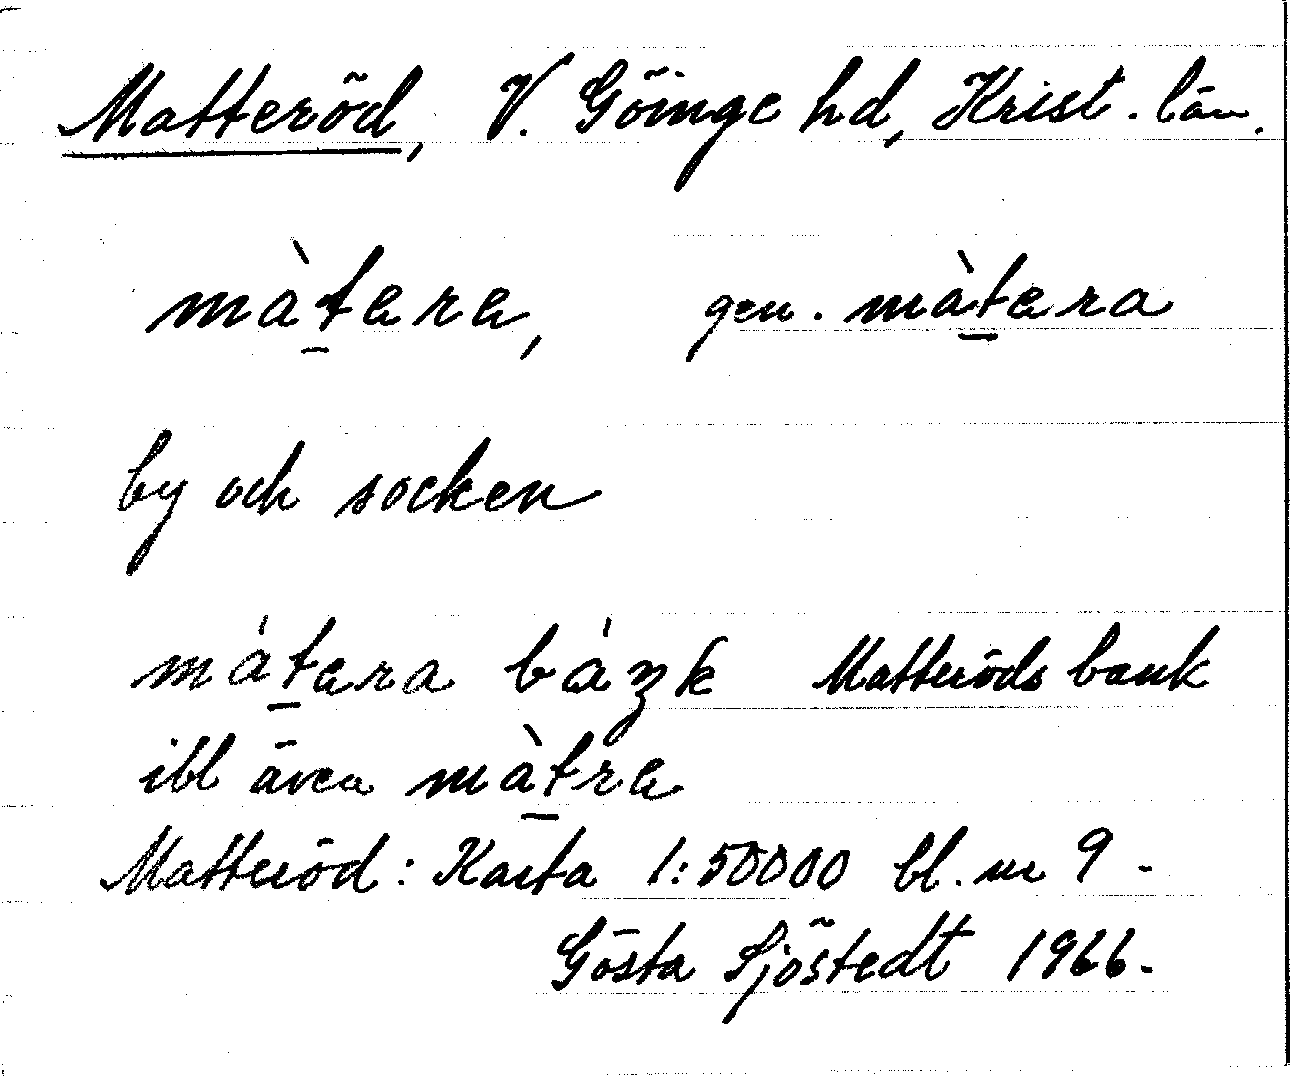 Matteröd, V. Göinge hd, Krist. län.
màt̲ərə, gen. màt̲əra
by och socken
mát̲əra báŋk Matteröds bank
ibl även màt̲rə
Matteröd: Karta 1:50000 bl. nr 9 -
Gösta Sjöstedt 1966.